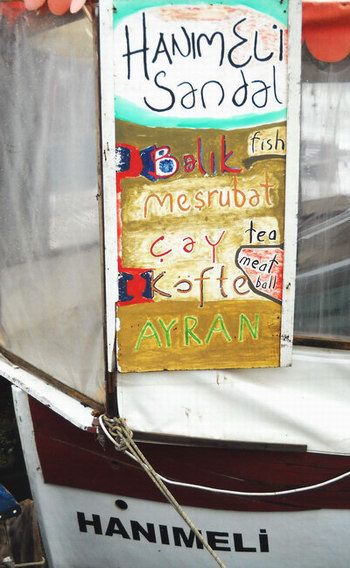 HANIMELİ
Sandal
Balık fish
meşrubat
çay tea
Köfte meat ball
AYRAN
HANIMELİ